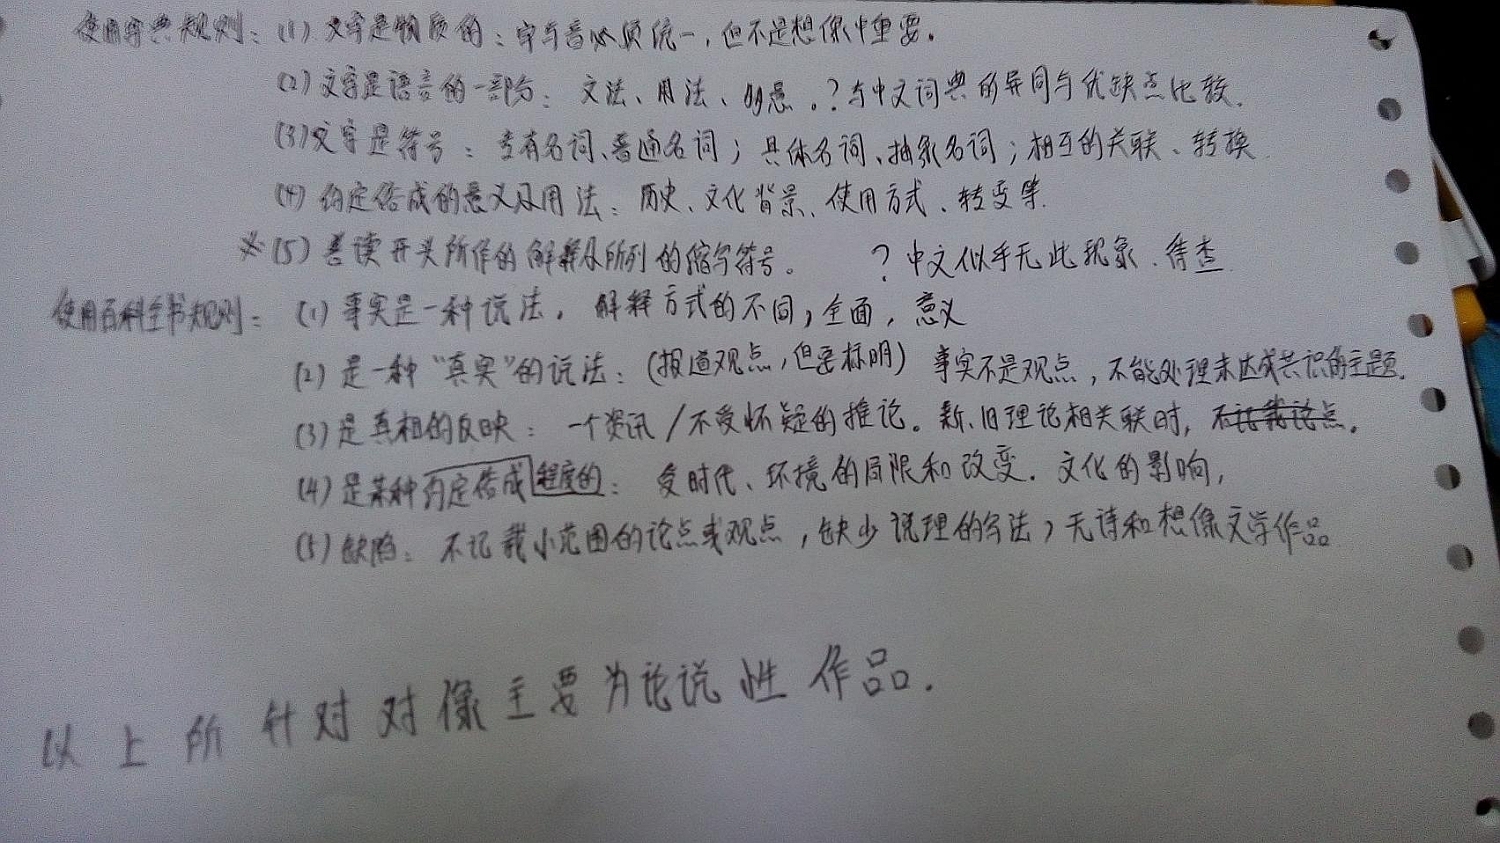 使用字典规则：(1) 文字是物质的：字与音必须统一，但不是想像中重要。
(2) 文字是语言的一部分：文法、用法、的意。？与中文词典的异同与优缺点比较.
(3) 文字是符号：专有名词、普通名词；具体名词、抽象名词；相互的关联、转换
(4) 约定俗成的意义及用法：历史、文化背景、使用方式、转变等.
※(5) 善读开头所作的解释及所列的缩写符号。 ？中文似乎无此现象、待查
使用百科全书规则：(1) 事实是一种说法，解释方式的不同，全面，意义
(2) 是一种“真实”的说法：(报道观点，但要标明) 事实不是观点，不能处理未达成共识的主题.
(3) 是真相的反映：一个资讯/不受怀疑的推论。新、旧理论相关联时，不记载论点。
(4) 是某种约定俗成程度的：受时代、环境的局限和改变. 文化的影响，
(5) 缺陷：不记载小范围的论点或观点，缺少说理的写法，无诗和想像文学作品
以上所针对对像主要为论说性作品.